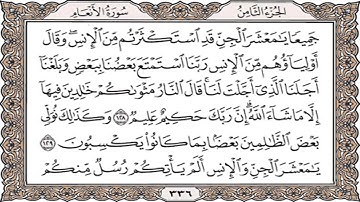 الجزء الثامن سورة الأنعام
جَمِيعًا يَٰمَعْشَرَ ٱلْجِنِّ قَدِ ٱسْتَكْثَرْتُم مِّنَ ٱلْإِنسِ ۖ وَقَالَ
أَوْلِيَآؤُهُم مِّنَ ٱلْإِنسِ رَبَّنَا ٱسْتَمْتَعَ بَعْضُنَا بِبَعْضٍ وَبَلَغْنَآ
أَجَلَنَا ٱلَّذِىٓ أَجَّلْتَ لَنَا ۚ قَالَ ٱلنَّارُ مَثْوَىٰكُمْ خَٰلِدِينَ فِيهَآ
إِلَّا مَا شَآءَ ٱللَّهُ ۗ إِنَّ رَبَّكَ حَكِيمٌ عَلِيمٌ ١٢٨ وَكَذَٰلِكَ نُوَلِّى
بَعْضَ ٱلظَّٰلِمِينَ بَعْضًۢا بِمَا كَانُوا۟ يَكْسِبُونَ ١٢٩
يَٰمَعْشَرَ ٱلْجِنِّ وَٱلْإِنسِ أَلَمْ يَأْتِكُمْ رُسُلٌ مِّنكُمْ
٣٣٦